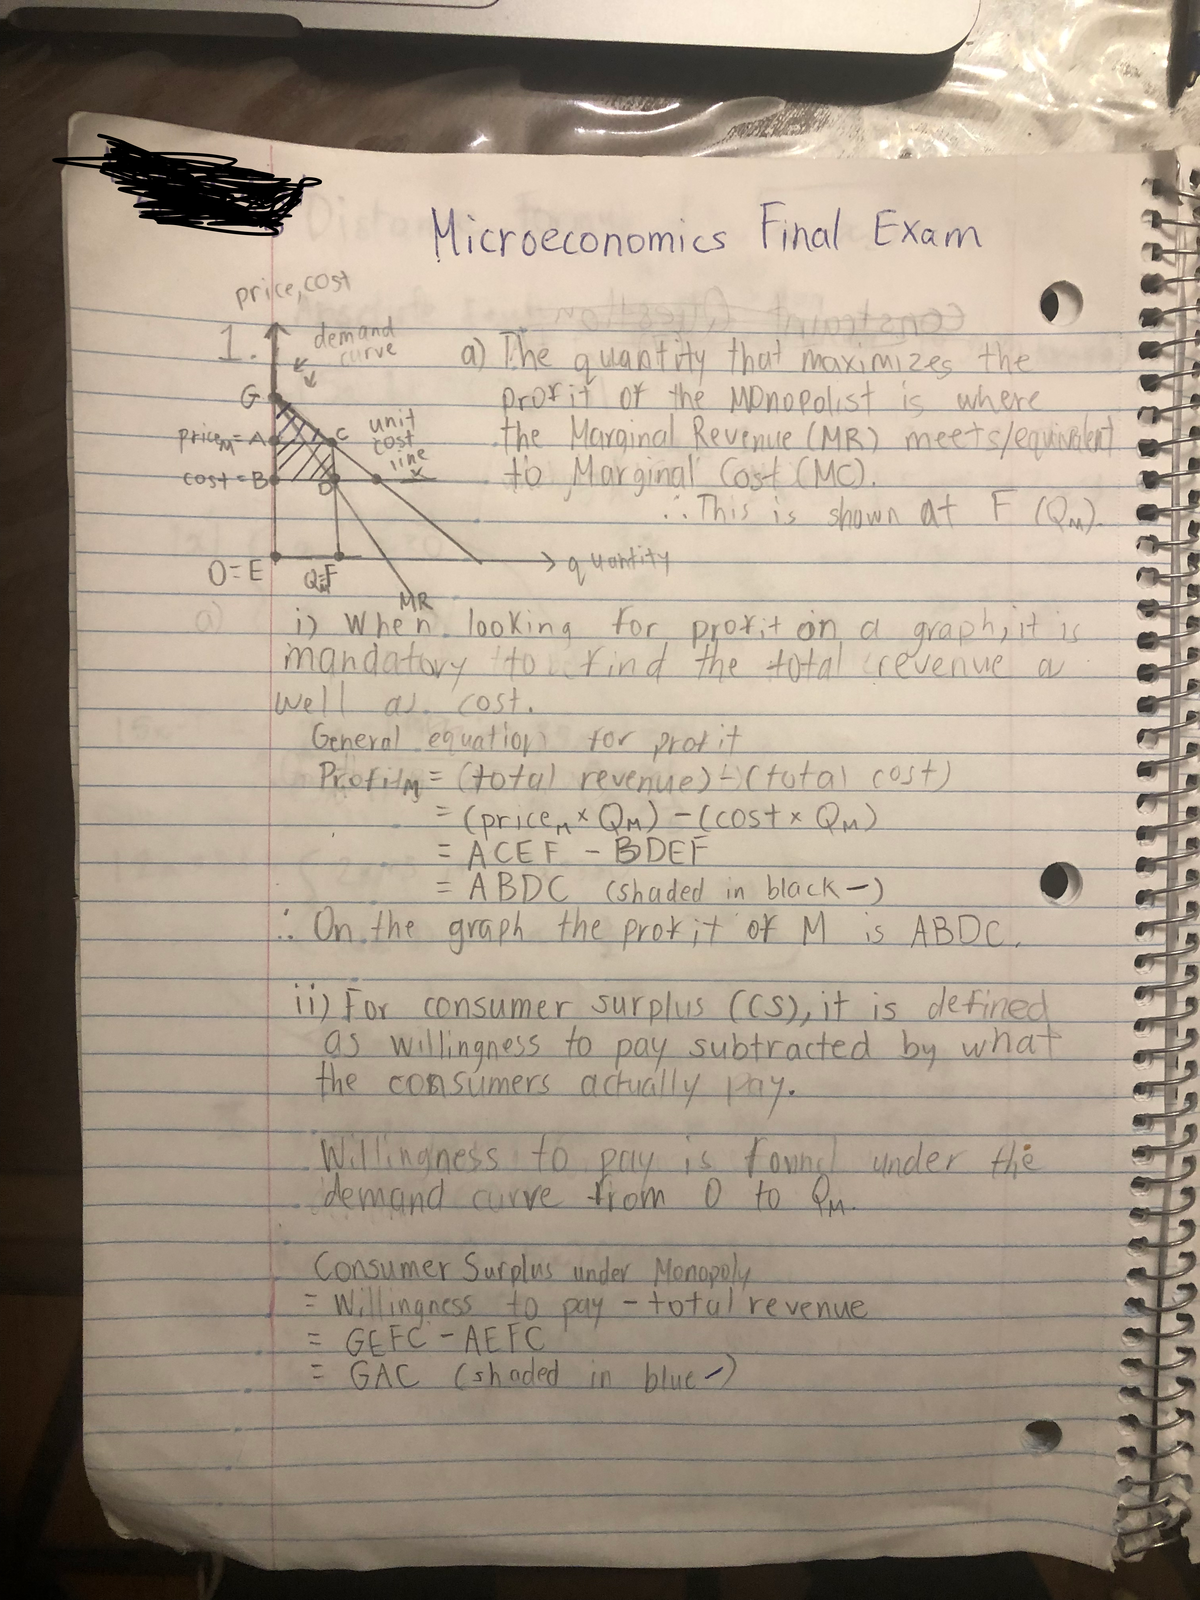 Microeconomics Final Exam
price, cost
1.
demand
curve
G
priceM = A
C
unit
cost
line
cost = B
D
O = E
QM=F
quantity
MR
a) The quantity that maximizes the
profit of the Monopolist is where
the Marginal Revenue (MR) meets/equivalent
to Marginal Cost (MC).
∴ This is shown at F (QM).
i) When looking for profit on a graph, it is
mandatory to find the total revenue a
well as cost.
General equation for profit
ProfitM = (total revenue) - (total cost)
= (priceM × QM) - (cost × QM)
= ACEF - BDEF
= ABDC (shaded in black -)
∴ On the graph the profit of M is ABDC.
ii) For consumer surplus (CS), it is defined
as willingness to pay subtracted by what
the consumers actually pay.
Willingness to pay is found under the
demand curve from 0 to QM.
Consumer Surplus under Monopoly
= Willingness to pay - total revenue
= GEFC - AEFC
= GAC (shaded in blue -)